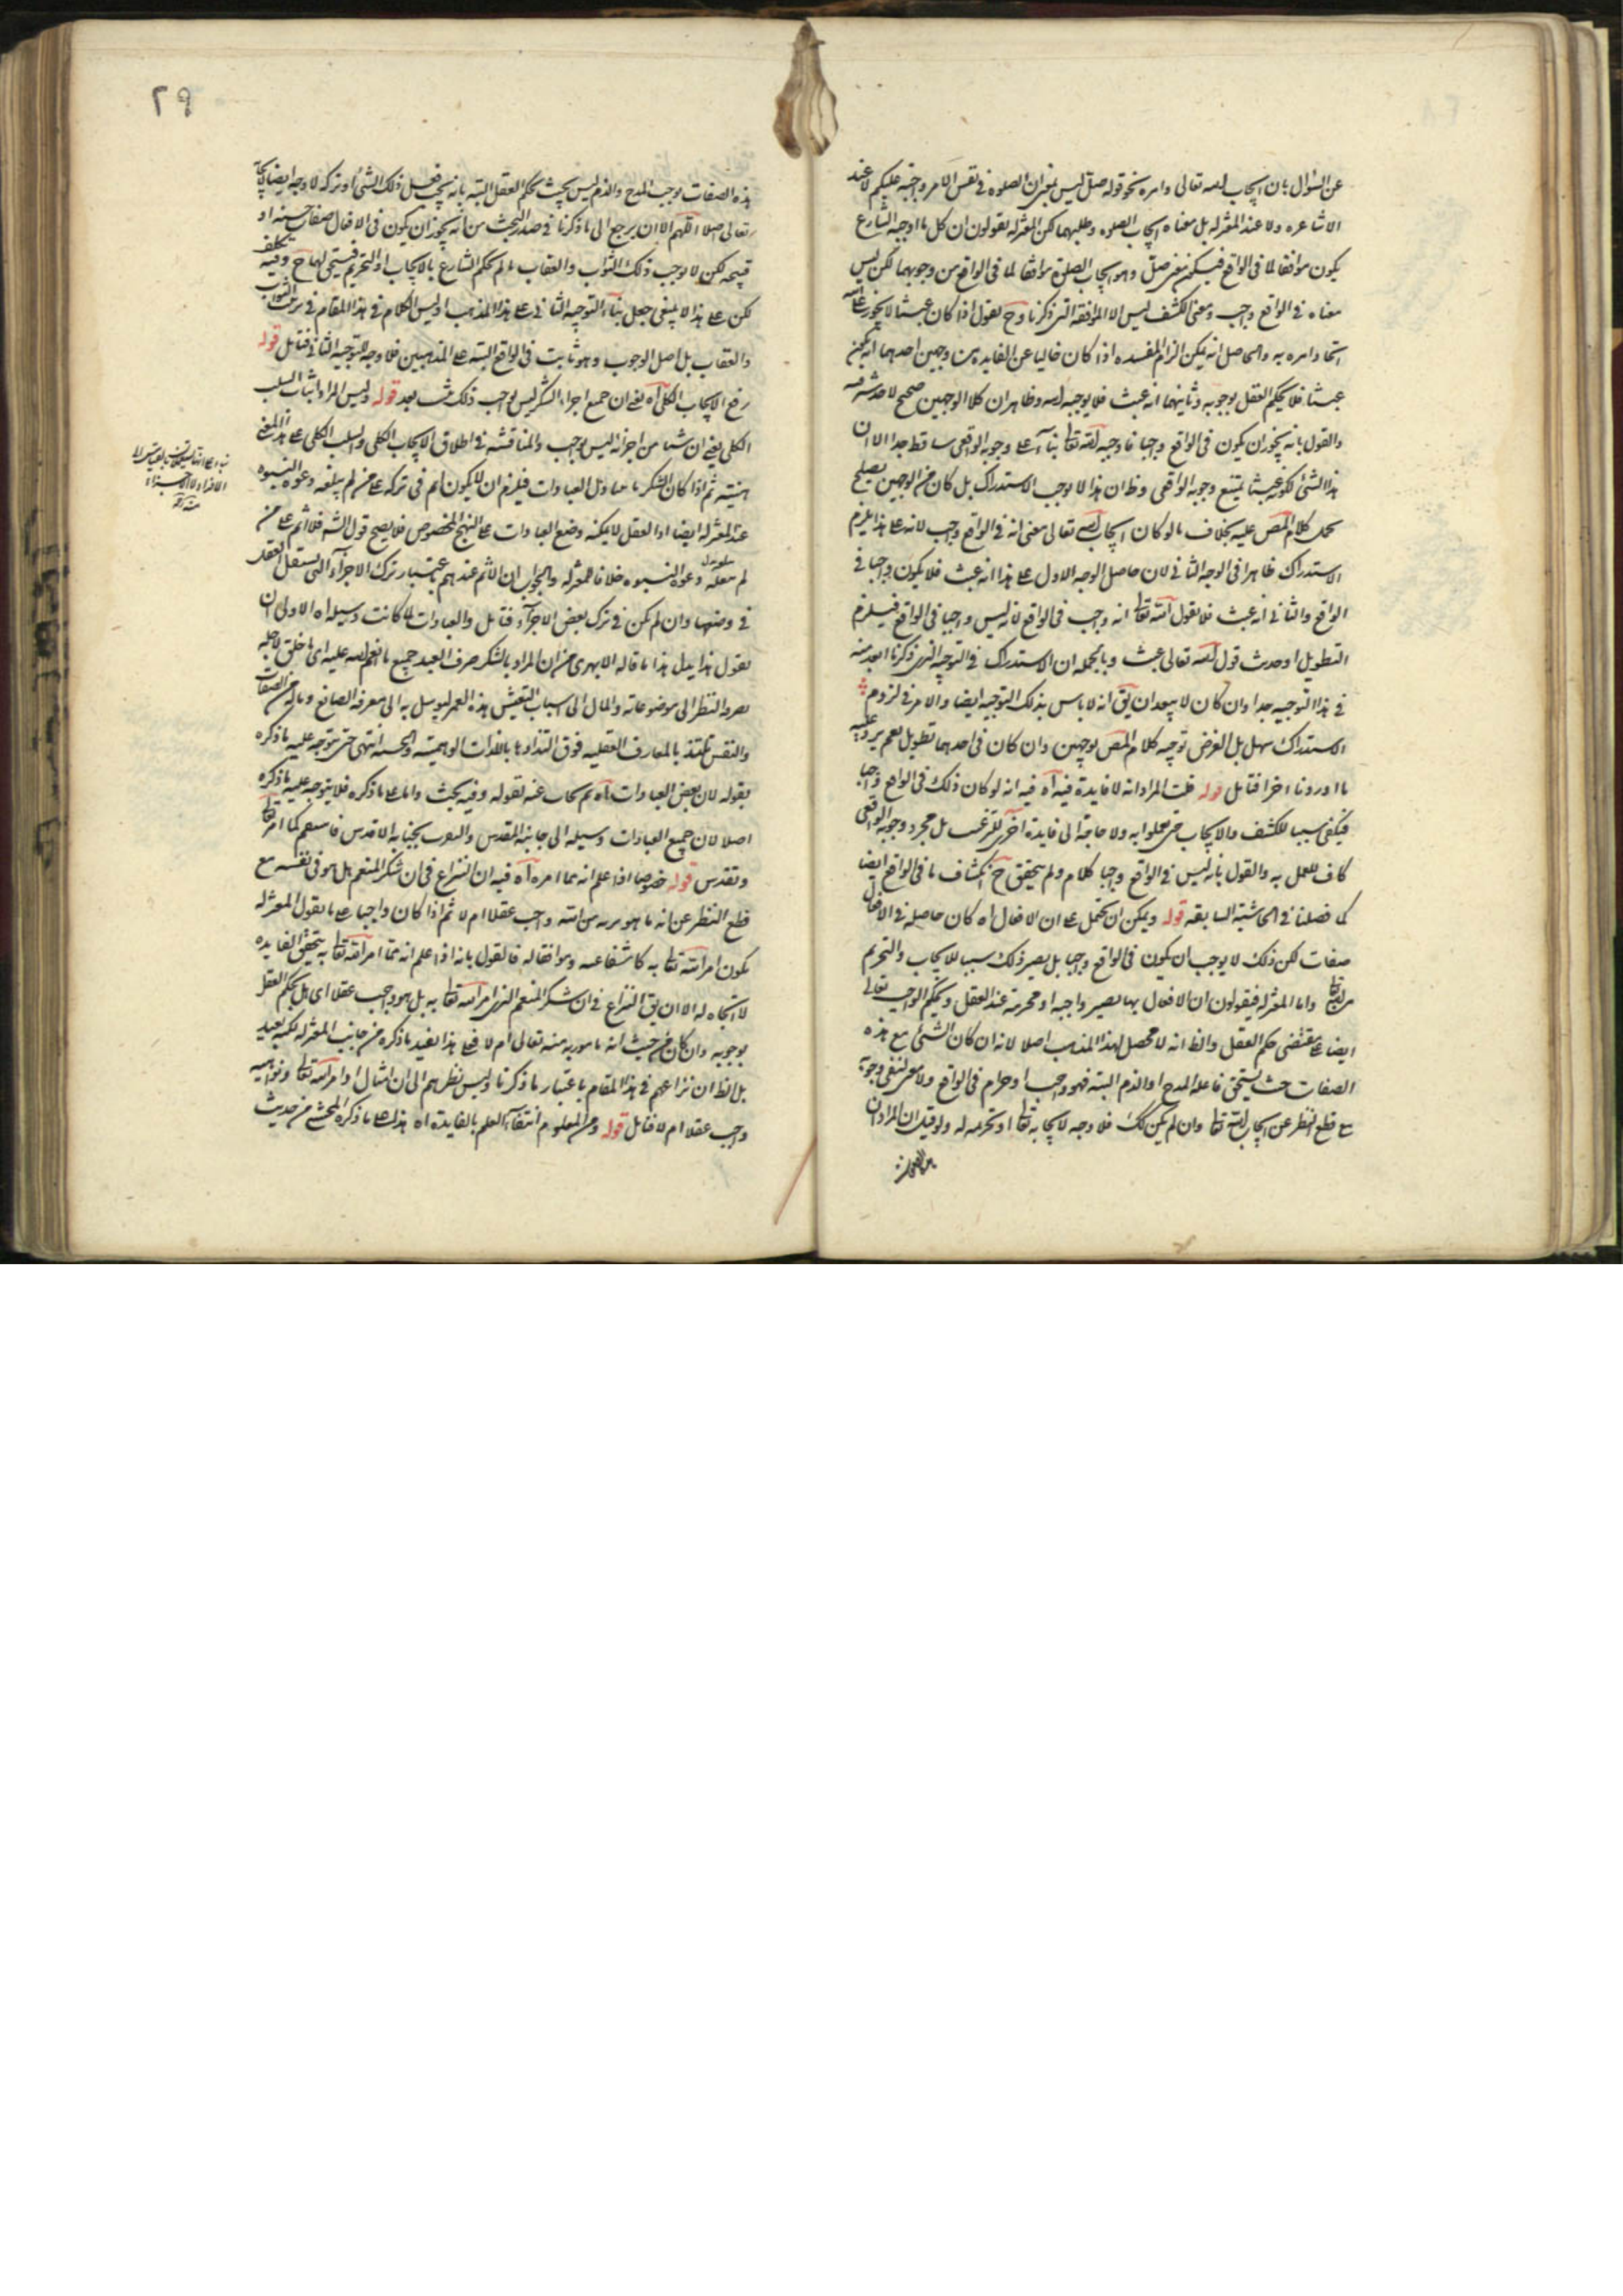 عن السؤال بان ايجاب الله تعالى وامره نحو قوله صل ليس بمعنى ان الصلوة فى نفس الامر واجبة عليكم لا عند
الاشاعره ولا عند المعتزله بل معناه ايجاب الصلوه وطلبهما لكن المعتزله يقولون ان كل ما اوجبه الشارع
يكون موافقا لما فى الواقع فيكون معنى صل وهو ايجاب الصلوة موافقا لما فى الواقع من وجوبهما لكن ليس
معناه فى الواقع واجب ومعنى الكشف ليس الا الموافقة التى ذكرنا وح نقول اذا كان عبثا لا يجوز
وامره به والحاصل انه يمكن الزام المفسده اذا كان خاليا عن الفايده من وجهين احدهما انه يكون
عبثا فلا يحكم العقل بوجوبه وثانيهما انه عبث فلا يوجبه الله وظاهر ان كلا الوجهين صحيح لا خدشة فيه
والقول بانه يجوز ان يكون فى الواقع واجبا فاوجبه الله تعالى بناء على وجوبه الواقعى ساقط جدا الا ان
هذا الشئ لكونه عبثا يمتنع وجوبه الواقعى وظ ان هذا لا يوجب الاستدراك بل كان من الوجهين يصلح
محمل كلام المص عليه بخلاف ما لو كان ايجاب الله تعالى معنى انه فى الواقع واجب لانه على هذا يلزم
الاستدراك ظاهرا فى الوجه الثانى لان حاصل الوجه الاول على هذا انه عبث فلا يكون واجبا فى
الواقع والثانى انه عبث فلا يقول الله تعالى انه واجب فى الواقع لانه ليس واجبا فى الواقع فيلزم
التطويل او حدث قول الله تعالى عبث وبالجمله ان الاستدراك فى التوجيه الذى ذكرنا ابعد منه
فى هذا التوجيه جدا وان كان لا يبعد ان يق انه لا باس بذلك التوجيه ايضا والامر فى لزوم
الاستدراك سهل بل الغرض توجيه كلام المص بوجهين وان كان فى احدهما تطويل نعم يرد عليه
ما اوردنا اخرا فتامل قوله قلت المراد انه لا فايدة فيه آه فيه انه لو كان ذلك فى الواقع واجبا
فيكفى سببا للكشف والايجاب حتى يعملوا به ولا حاجة الى فايدة اخرى للترغيب بل مجرد وجوبه الواقعى
كاف للعمل به والقول بانه ليس فى الواقع واجبا كلام ولم يتحقق ح انكشاف ما فى الواقع ايضا
كما فصلنا فى الحاشية السابقه قوله ويمكن ان يحمل على ان الافعال اه كان حاصله فى الافعال
صفات لكن ذلك لا يوجب ان يكون فى الواقع واجبا بل يصير ذلك سببا للايجاب والتحريم
واما المعتزله فيقولون ان الافعال بها يصير واجبه او محرمة عند العقل ويحكم الواجب تعالى
ايضا على مقتضى حكم العقل والظ انه لا محصل لهذا المذهب اصلا لانه ان كان الشئ مع هذه
الصفات حيث يستحق فاعله المدح او الذم البته فهو واجب او حرام فى الواقع ولا معنى لنفى وجوبه
مع قطع النظر عن ايجاب الله تعالى وان لم يكن كك فلا وجه لايجابه تعالى او تحريمه له ولو قيل ان المراد ان
٢٩
هذه الصفات يوجب المدح والذم ليس بحيث يحكم العقل البته بانه يجب فعل ذلك الشئ او تركه لا وجه ايضا لايجابه
تعالى اصلا اللهم الا ان يرجع الى ما ذكرنا فى صدر المبحث من انه يجوز ان يكون فى الافعال صفات حسنه او
قبيحه لكن لا يوجب ذلك الثواب والعقاب ما لم يحكم الشارع بالايجاب او التحريم فيستحق لهما ح وفيه تكلف
لكن على هذا لا ينبغى جعل بناء التوجيه الثانى على هذا المذهب اذ ليس الكلام فى هذا المقام فى ترتب الثواب
والعقاب بل اصل الوجوب وهو ثابت فى الواقع البته على المذهبين فلا وجه للتوجيه الثانى فتامل قوله
رفع الايجاب الكلى آه يعنى ان جميع اجزاء الشكر ليس بواجب ذلك قوله وليس المراد اثبات السلب
الكلى يعنى ان شيئا من اجزائه ليس بواجب والمناقشة فى اطلاق الايجاب الكلى والسلب الكلى على هذا المعنى
هينة ثم اذا كان الشكر ما يتناول العبادات فيلزم ان لا يكون اثم فى تركه على من لم يبلغه دعوة النبوه
عند المعتزله ايضا اذ العقل لا يمكنه وضع العبادات على النهج المخصوص فلا يصح قول الش فلا اثم على من
لم يبلغه دعوة النبوه خلافا للمعتزله والجواب ان الاثم عندهم باعتبار ترك الاجزاء التى يستقل العقل
فى وضعها وان لم يكن فى ترك بعض الاجزاء فتامل والعبادات لما كانت وسيله اه الاولى ان
يقول هذا بدل هذا ما قاله الابهرى من ان المراد بالشكر صرف العبد جميع ما انعم الله عليه الى ما خلق لاجله
والنفس تلتذ بالمعارف العقليه فوق التذاذها باللذات الوهمية والحسيه انتهى حتى يتوجه عليه ما ذكره
بقوله لان بعض العبادات اه ثم يجاب عنه بقوله وفيه بحث واما على ما ذكره فلا يتوجه عليه ما ذكره
اصلا لان جميع العبادات وسيله الى جانبه المقدس والتقرب بجنابه الاقدس فاستقم كما امر
وتقدس قوله خصوصا اذا علم انه مما امره آه فيه ان النزاع فى ان شكر المنعم هل هو فى نفسه مع
قطع النظر عن انه مامور به من الله واجب عقلا ام لا ثم اذا كان واجبا على ما يقول المعتزله
يكون امر الله تعالى به كاشفا عنه وموافقا له فالقول بانه اذا علم انه مما امر الله تعالى به يتحقق الفايده
لا اتجاه له الا ان يق النزاع فى ان شكر المنعم الذى امر الله تعالى به بل هو واجب عقلا اى هل يحكم العقل
بوجوبه وان كان من حيث انه مامور به منه تعالى ام لا فعلى هذا يفيد ما ذكره من جانب المعتزله لكنه بعيد
بل الظ ان نزاعهم فى هذا المقام باعتبار ما ذكرنا وليس نظرهم الى ان امتثال اوامر الله تعالى ونواهيه
واجب عقلا ام لا فتامل قوله ومن المعلوم انتفاء العلم بالفايده اه هذا على ما ذكره المحشى من حديث